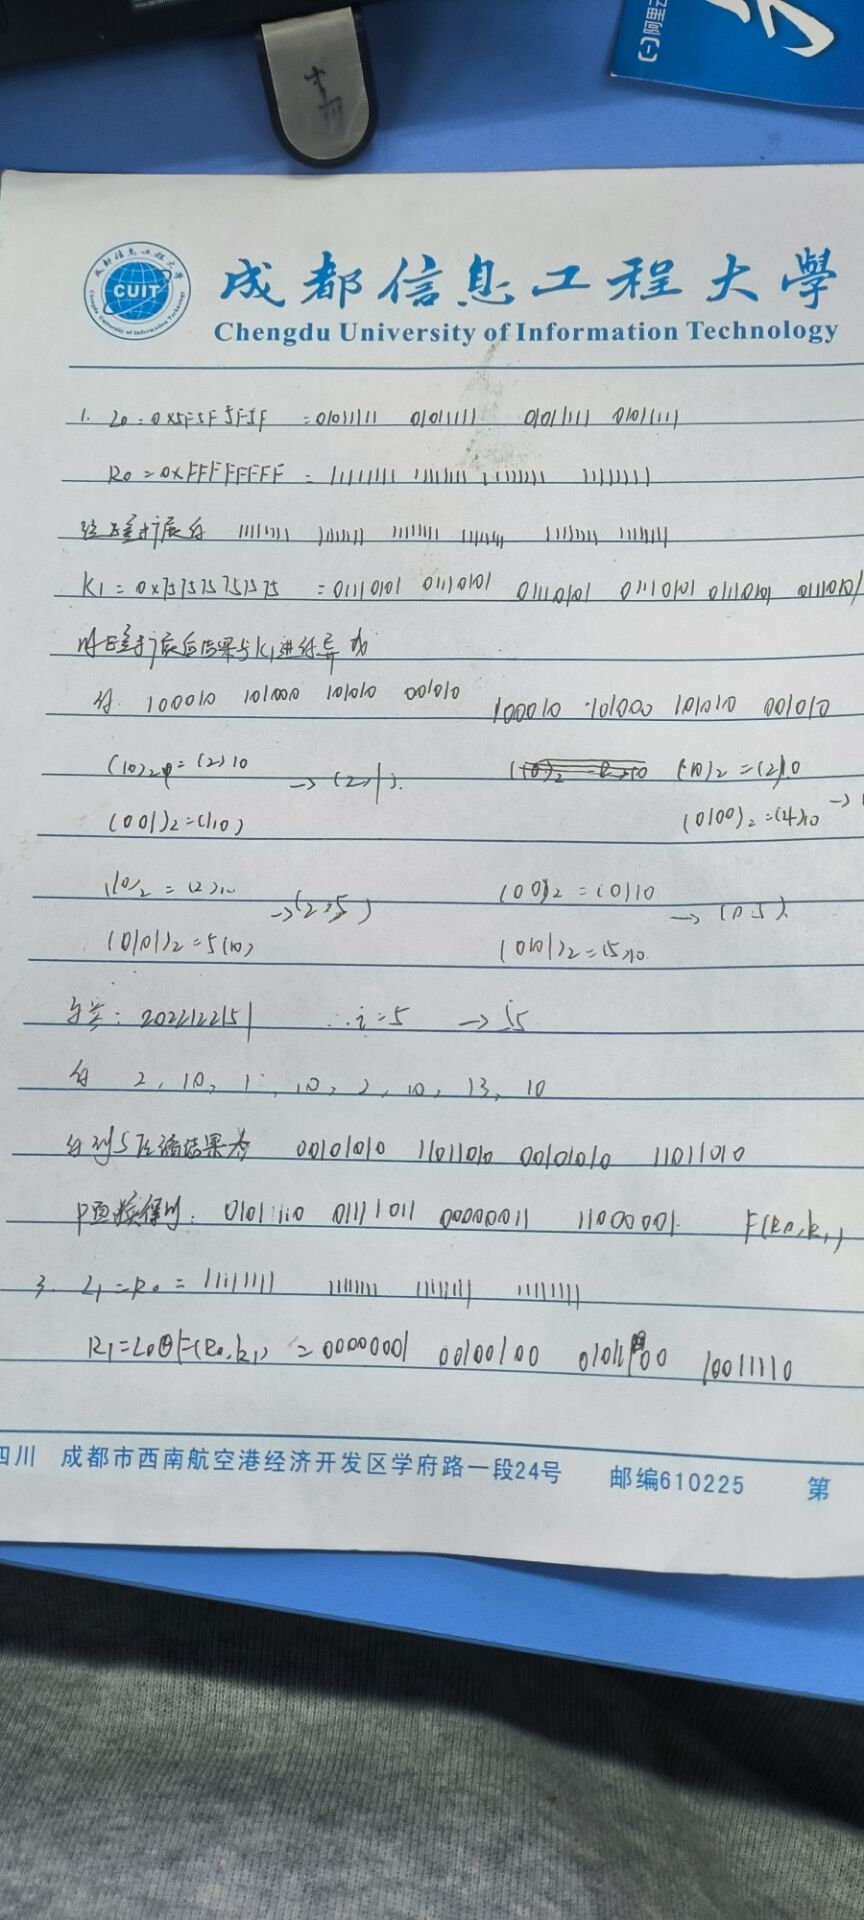 阿里云
CUIT
成都信息工程大學
Chengdu University of Information Technology
1. L0 = 0x5F5F5F5F = 01011111 01011111 01011111 01011111
R0 = 0xFFFFFFFF = 11111111 11111111 11111111 11111111
经E盒扩展后 11111111 11111111 11111111 11111111 11111111 11111111
K1 = 0x757575757575 = 01110101 01110101 01110101 01110101 01110101 01110101
将E盒扩展后结果与K1进行异或
得 100010 101000 101010 001010 100010 101000 101010 001010
(10)2 = (2)10 → (2,1). (10)2 = (2)10
(001)2 = (1)10 (0100)2 = (4)10 →
(10)2 = (2)10 → (2,5) (00)2 = (0)10 → (0,5).
(0101)2 = 5(10) (0101)2 = (5)10
学号: ∴ i=5 → S5
得 2, 10, 1 , 10, 2, 10, 13, 10
得到S压缩结果为 00101010 11011010 00101010 11011010
P置换得到: 01111011 00000011 11000001. F(R0,k1)
3. L1 = R0 = 11111111 11111111 11111111 11111111
R1 = L0⊕F(R0,k1) = 00000001 00100100 01011100 10011110
四川 成都市西南航空港经济开发区学府路一段24号 邮编610225 第